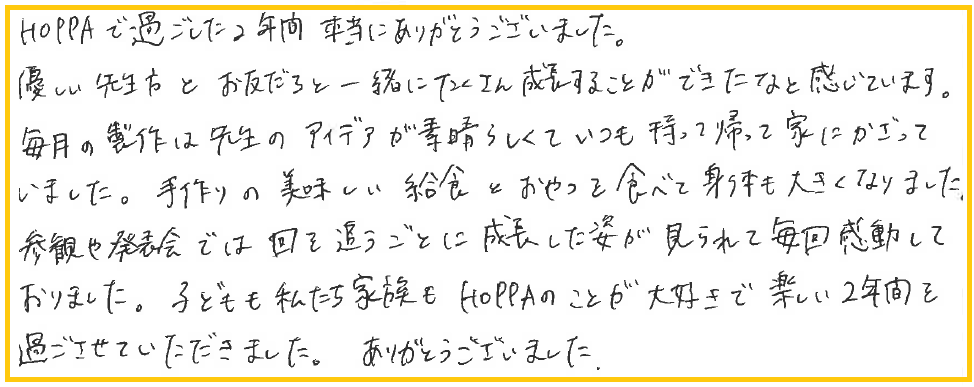 HOPPAで過ごした2年間 本当にありがとうございました。
優しい先生方と お友だちと一緒にたくさん成長することができたなと感じています。
毎月の製作は先生のアイデアが素晴らしくていつも持って帰って家にかざって
いました。手作りの美味しい給食とおやつを食べて身体も大きくなりました。
参観や発表会では回を追うごとに成長した姿が見られて毎回感動して
おりました。子どもも私たち家族もHOPPAのことが大好きで楽しい2年間を
過ごさせていただきました。 ありがとうございました。